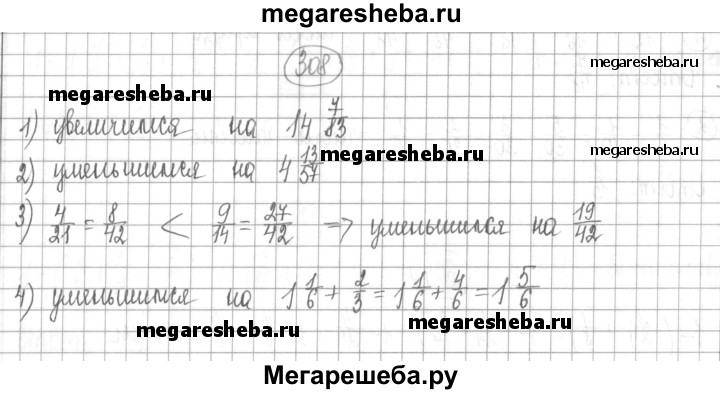 megaresheba.ru
308
megaresheba.ru
megaresheba.ru
1) увеличится на 14 7/83
2) уменьшится на 4 13/57
megaresheba.ru
megaresheba.ru
3) 4/21 = 8/42 < 9/14 = 27/42 => уменьшился на 19/42
4) уменьшится на 1 1/6 + 2/3 = 1 1/6 + 4/6 = 1 5/6
megaresheba.ru
megaresheba.ru
Мегарешеба.ру